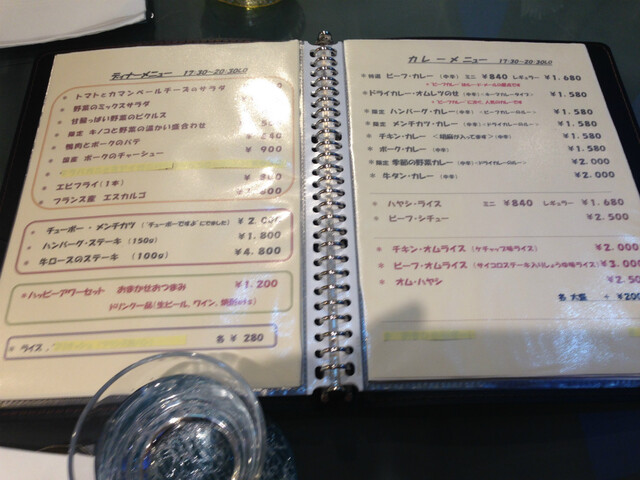 ディナーメニュー 17:30-20:30LO
トマトとカマンベールチーズのサラダ
野菜のミックスサラダ
甘酸っぱい野菜のピクルス
限定 キノコと野菜の温かい盛合わせ
鴨肉とポークのパテ
国産 ポークのチャーシュー ¥ 900
エビフライ(1本)
フランス産 エスカルゴ
チューボー・メンチカツ ("チューボーですよ"にでました)
ハンバーグ・ステーキ (150g) ¥1.800
牛ロースのステーキ (100g) ¥4.800
ハッピーアワーセット おまかせおつまみ ¥1.200
ドリンク一品(生ビール、ワイン、焼酎etc)
ライス 各 ¥ 280
カレーメニュー 17:30-20:30LO
特選 ビーフ・カレー (中辛) ミニ ¥840 レギュラー ¥1.680
ドライカレー・オムレツのせ (中辛) ¥1.580
限定 ハンバーグ・カレー ¥1.580
限定 メンチカツ・カレー (中辛) ¥1.580
チキン・カレー ¥1.580
ポーク・カレー (中辛) ¥1.580
限定 季節の野菜カレー (中辛) ¥2.000
牛タン・カレー (中辛) ¥2.000
ハヤシ・ライス ミニ ¥840 レギュラー ¥1.680
ビーフ・シチュー ¥2.500
チキン・オムライス (ケチャップ味ライス) ¥2.000
ビーフ・オムライス (サイコロステーキ入りしょうゆ味ライス) ¥3.000
オム・ハヤシ
各 大盛 + ¥200